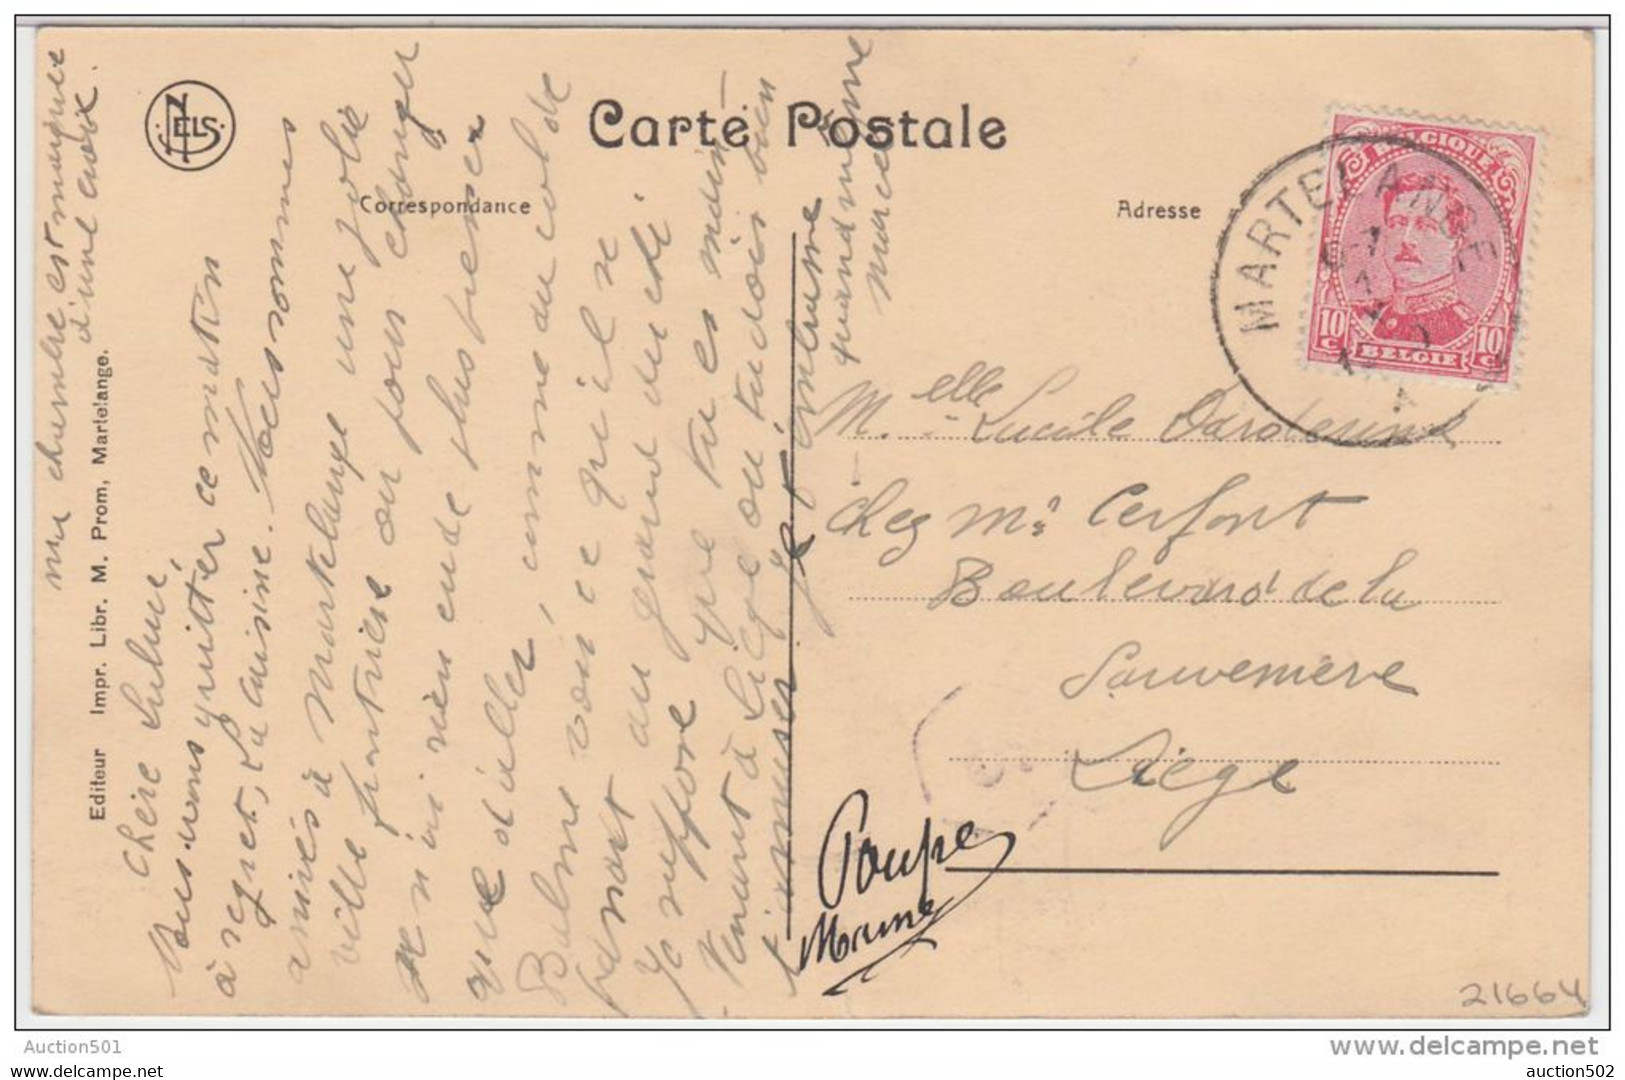 NELS
Carte Postale
Correspondance
Adresse
Editeur Impr. Libr. M. Prom, Martelange.
ma chambre est marquée
d'une croix.
Chère Lulune,
Nous venons quitter ce matin
à regret, La Cuisine. Nous sommes
arrivés à Martelange une jolie
ville frontière où pour changer
je n'ai rien eu de plus pressé
que d'aller, comme du col de
Balme voir ce qu'il se
passait au grand duché.
Je suppose que tu es main-
tenant à Liège où tu dois bien
t'amuser Je t'embrasse
quand même
Marcel
BELGIQUE
10 C
10 C
BELGIE
MARTELANGE
Melle Lucile
Chez Mr Cerfont
Boulevard de la
Sauvenière
Liège
Poupe
21664
Auction501
www.delcampe.net
auction502